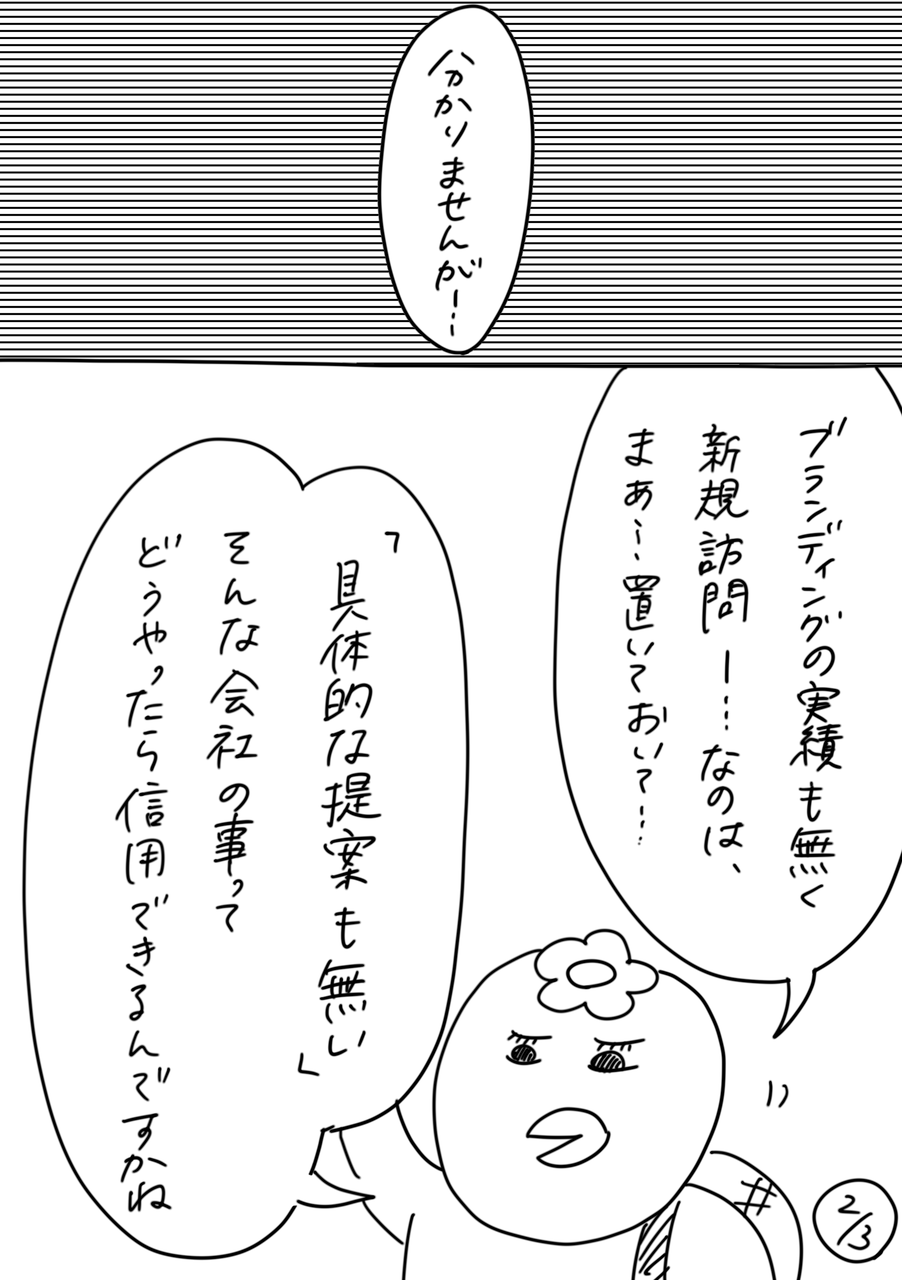 分かりませんが―…
ブランディングの実績も無く
新規訪問―…なのは、
まぁ…置いておいて…
「具体的な提案も無い」
そんな会社の事って
どうやったら信用できるんですかね
2/3